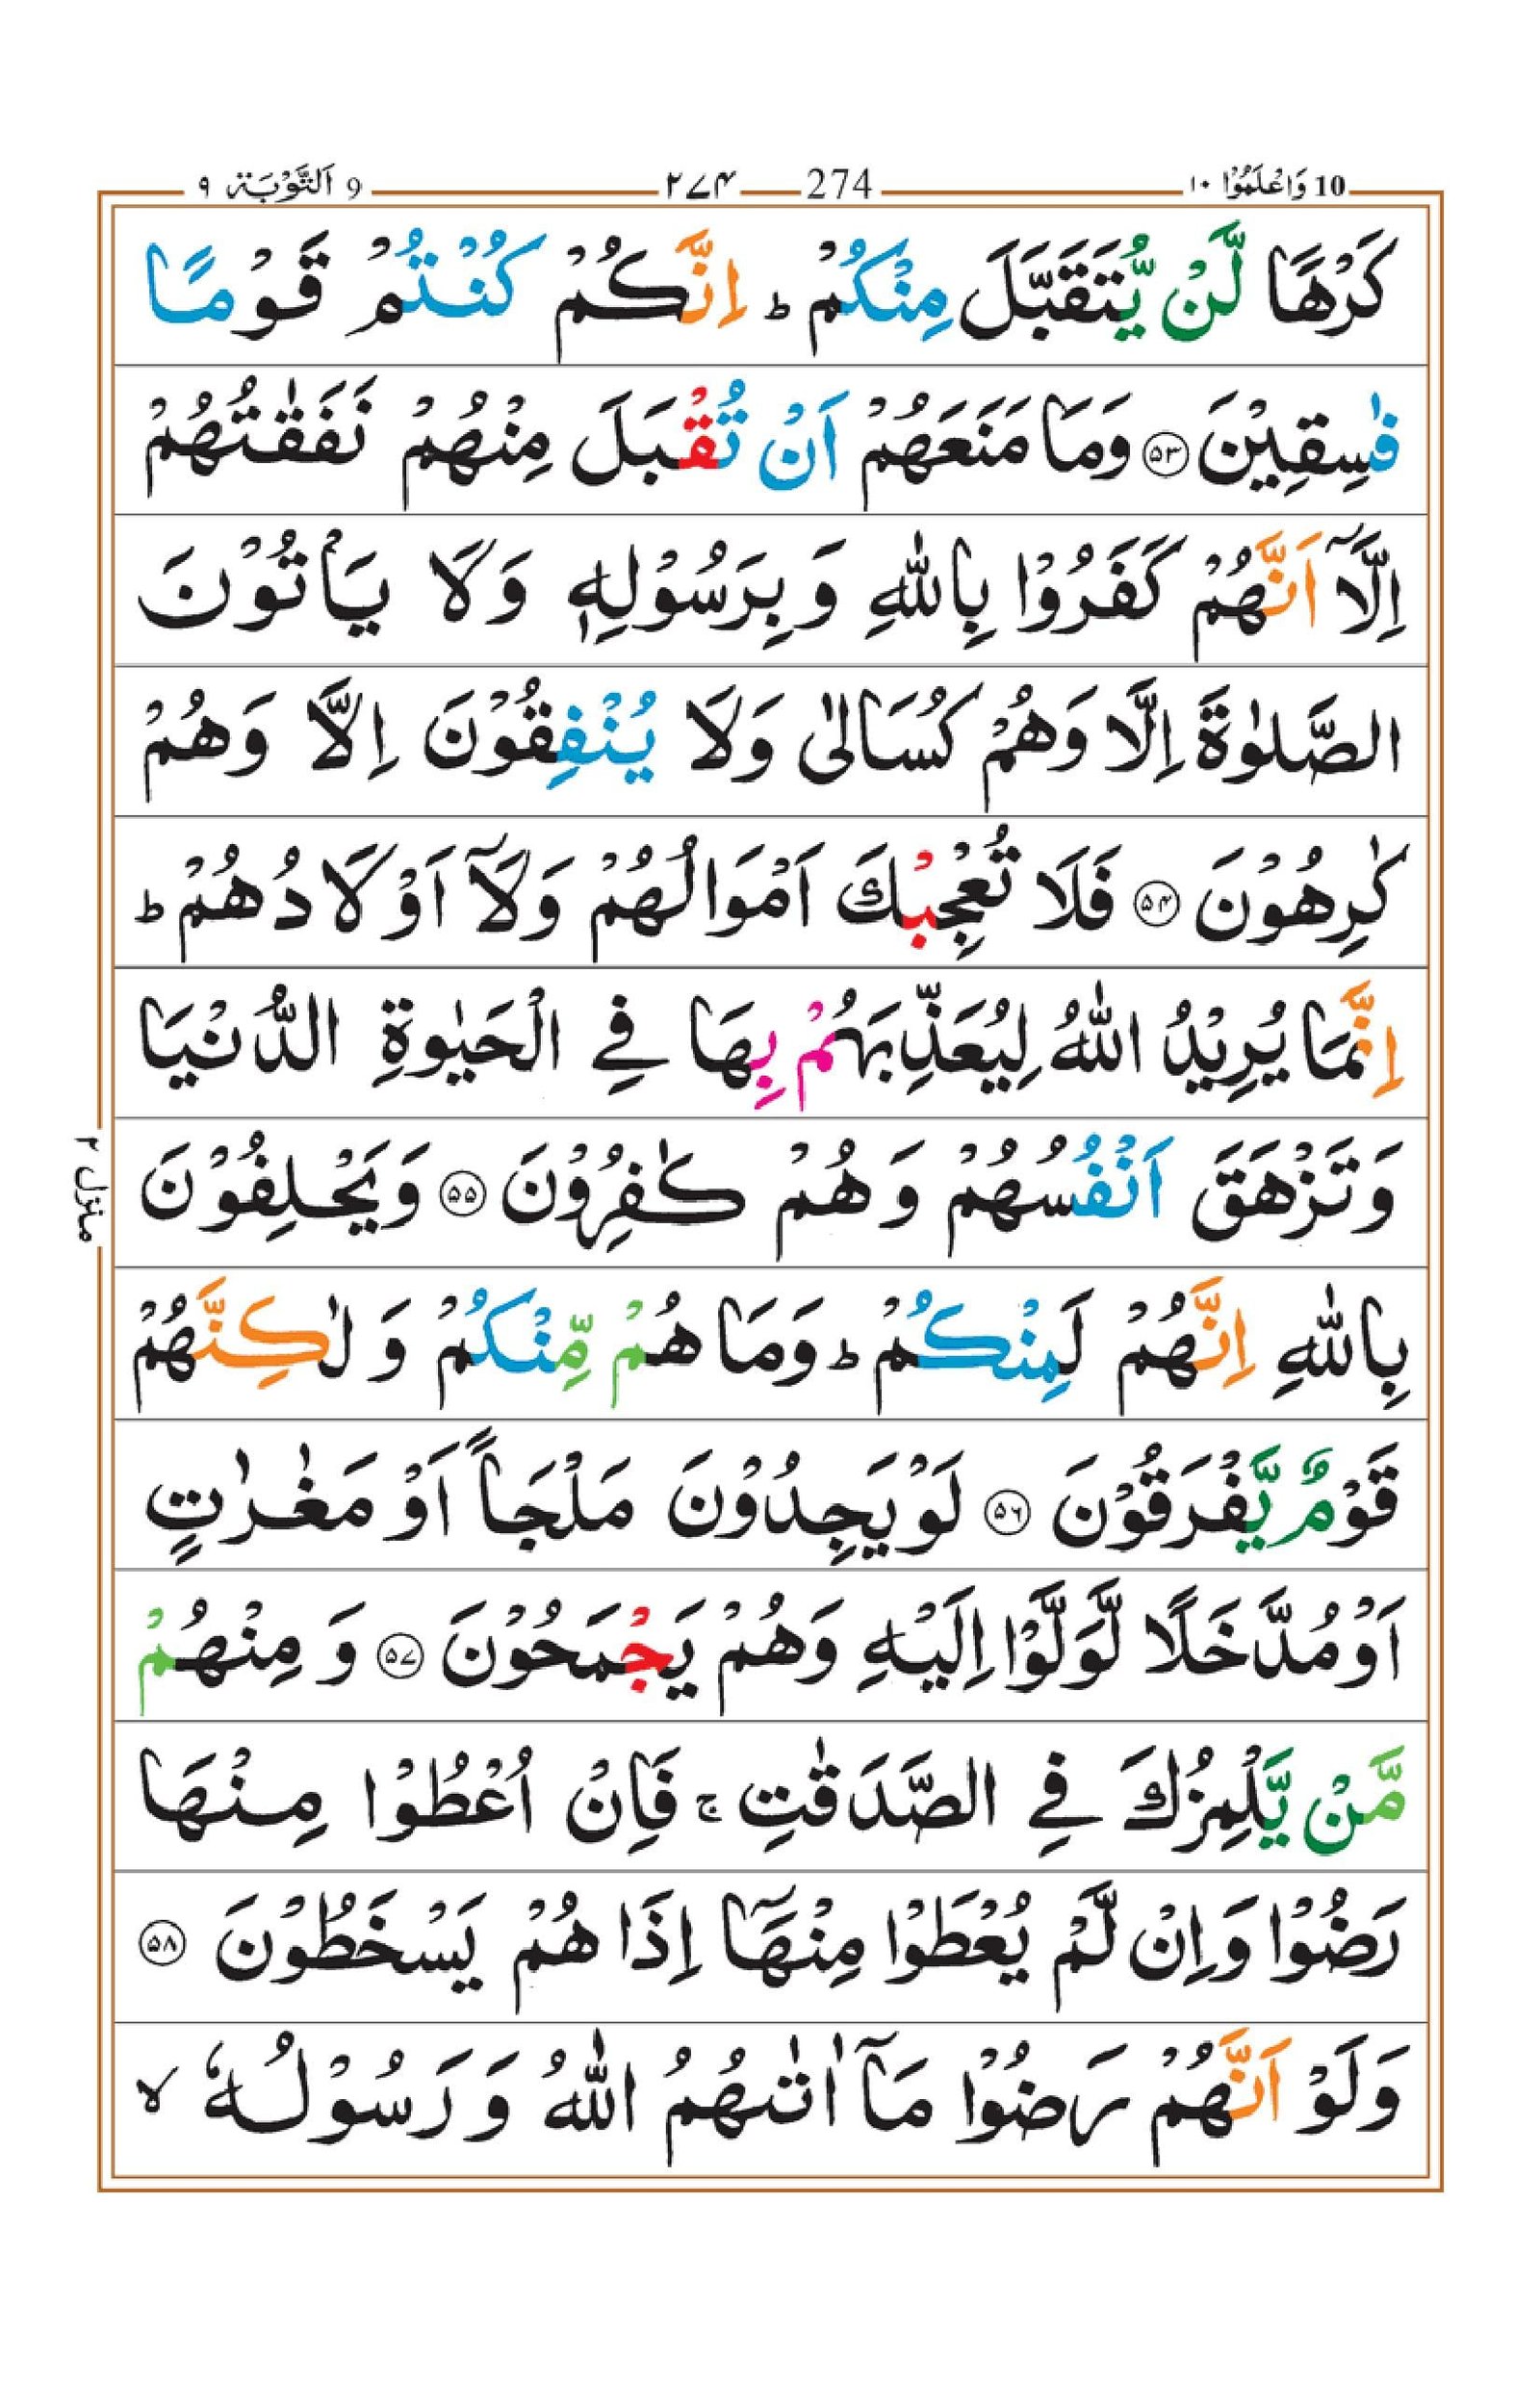 10 وَاعْلَمُوْٓا ۱۰
274 ۲۷۴
9 اَلتَّوْبَة ۹
كَرْهًا لَّنْ يُّتَقَبَّلَ مِنْكُمْ ؕ اِنَّكُمْ كُنْتُمْ قَوْمًا
فٰسِقِيْنَ ﴿۵۳﴾ وَمَا مَنَعَهُمْ اَنْ تُقْبَلَ مِنْهُمْ نَفَقٰتُهُمْ
اِلَّاۤ اَنَّهُمْ كَفَرُوْا بِاللّٰهِ وَ بِرَسُوْلِهٖ وَلَا يَاْتُوْنَ
الصَّلٰوةَ اِلَّا وَهُمْ كُسَالٰى وَلَا يُنْفِقُوْنَ اِلَّا وَهُمْ
كٰرِهُوْنَ ﴿۵۴﴾ فَلَا تُعْجِبْكَ اَمْوَالُهُمْ وَلَاۤ اَوْلَادُهُمْ ؕ
اِنَّمَا يُرِيْدُ اللّٰهُ لِيُعَذِّبَهُمْ بِهَا فِي الْحَيٰوةِ الدُّنْيَا
وَتَزْهَقَ اَنْفُسُهُمْ وَهُمْ كٰفِرُوْنَ ﴿۵۵﴾ وَيَحْلِفُوْنَ
بِاللّٰهِ اِنَّهُمْ لَمِنْكُمْ ؕ وَمَا هُمْ مِّنْكُمْ وَ لٰكِنَّهُمْ
قَوْمٌ يَّفْرَقُوْنَ ﴿۵۶﴾ لَوْ يَجِدُوْنَ مَلْجَاً اَوْ مَغٰرٰتٍ
اَوْ مُدَّخَلًا لَّوَلَّوْا اِلَيْهِ وَهُمْ يَجْمَحُوْنَ ﴿۵۷﴾ وَ مِنْهُمْ
مَّنْ يَّلْمِزُكَ فِي الصَّدَقٰتِ ۚ فَاِنْ اُعْطُوْا مِنْهَا
رَضُوْا وَاِنْ لَّمْ يُعْطَوْا مِنْهَاۤ اِذَا هُمْ يَسْخَطُوْنَ ﴿۵۸﴾
وَلَوْ اَنَّهُمْ رَضُوْا مَاۤ اٰتٰىهُمُ اللّٰهُ وَ رَسُوْلُهٗ ۙ
منزل ۲